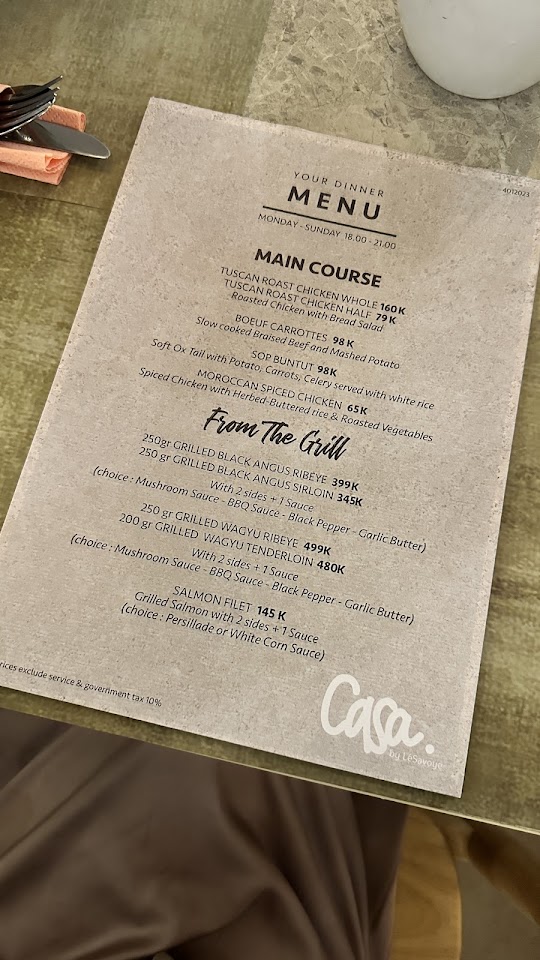 4012023
YOUR DINNER
MENU
MONDAY - SUNDAY 18.00 - 21.00
MAIN COURSE
TUSCAN ROAST CHICKEN WHOLE 160 K
TUSCAN ROAST CHICKEN HALF 79 K
Roasted Chicken with Bread Salad
BOEUF CARROTTES 98 K
Slow cooked Braised Beef and Mashed Potato
SOP BUNTUT 98K
Soft Ox Tail with Potato, Carrots, Celery served with white rice
MOROCCAN SPICED CHICKEN 65K
Spiced Chicken with Herbed-Buttered rice & Roasted Vegetables
From The Grill
250gr GRILLED BLACK ANGUS RIBEYE 399K
250 gr GRILLED BLACK ANGUS SIRLOIN 345K
With 2 sides + 1 Sauce
(choice : Mushroom Sauce - BBQ Sauce - Black Pepper - Garlic Butter)
250 gr GRILLED WAGYU RIBEYE 499K
200 gr GRILLED WAGYU TENDERLOIN 480K
With 2 sides + 1 Sauce
(choice : Mushroom Sauce - BBQ Sauce - Black Pepper - Garlic Butter)
SALMON FILET 145 K
Grilled Salmon with 2 sides + 1 Sauce
(choice : Persillade or White Corn Sauce)
rices exclude service & government tax 10%
Casa.
by LeSavoye